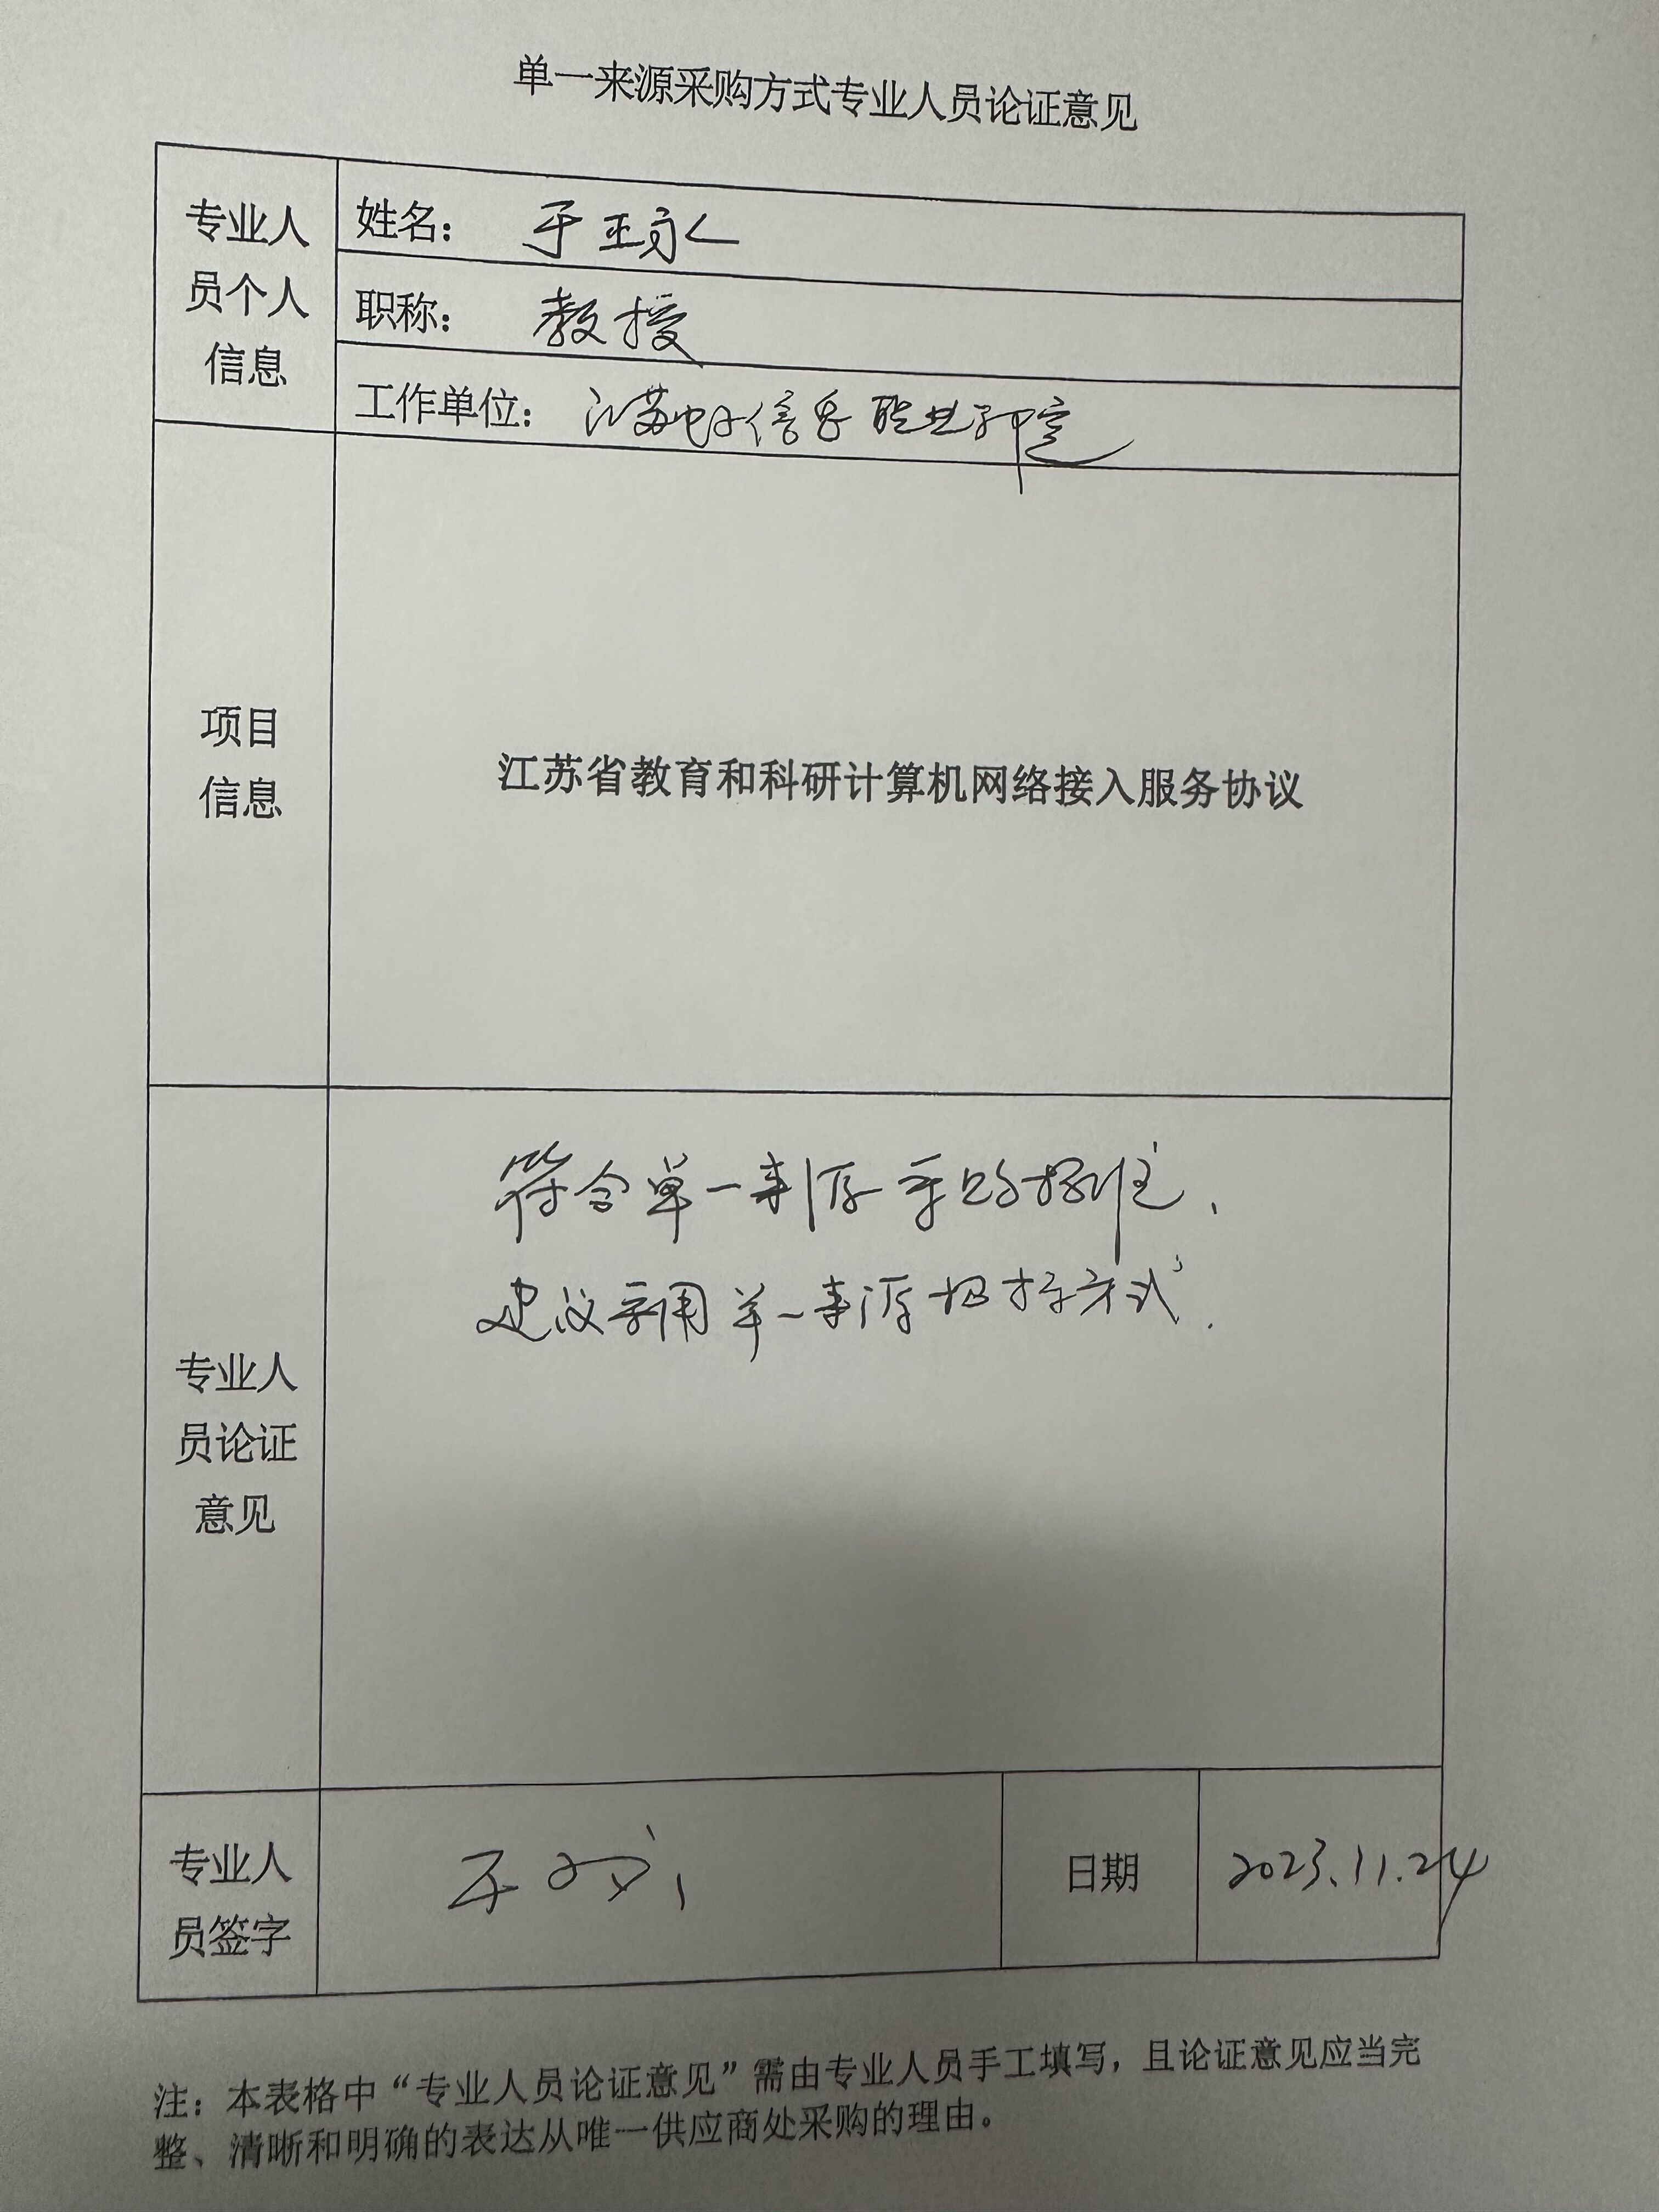 单一来源采购方式专业人员论证意见
专业人
员个人
信息
姓名： 于
职称： 教授
工作单位： 江苏电子信息职业学院
项目
信息
江苏省教育和科研计算机网络接入服务协议
专业人
员论证
意见
符合单一来源采购标准，
建议采用单一来源招标方式．
专业人
员签字
于
日期
2023.11.24
注：本表格中“专业人员论证意见”需由专业人员手工填写，且论证意见应当完
整、清晰和明确的表达从唯一供应商处采购的理由。